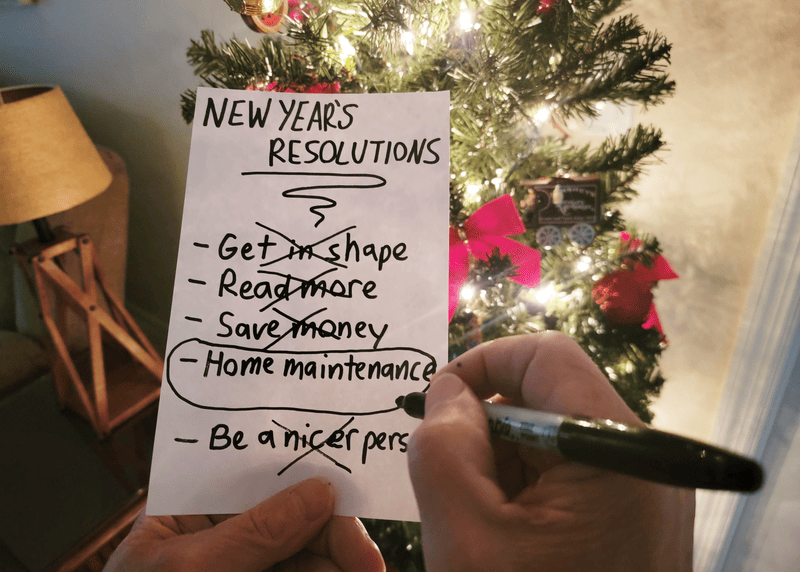 NEW YEAR'S
RESOLUTIONS
- Get in shape
- Read more
- Save money
- Home maintenance
- Be a nicer pers